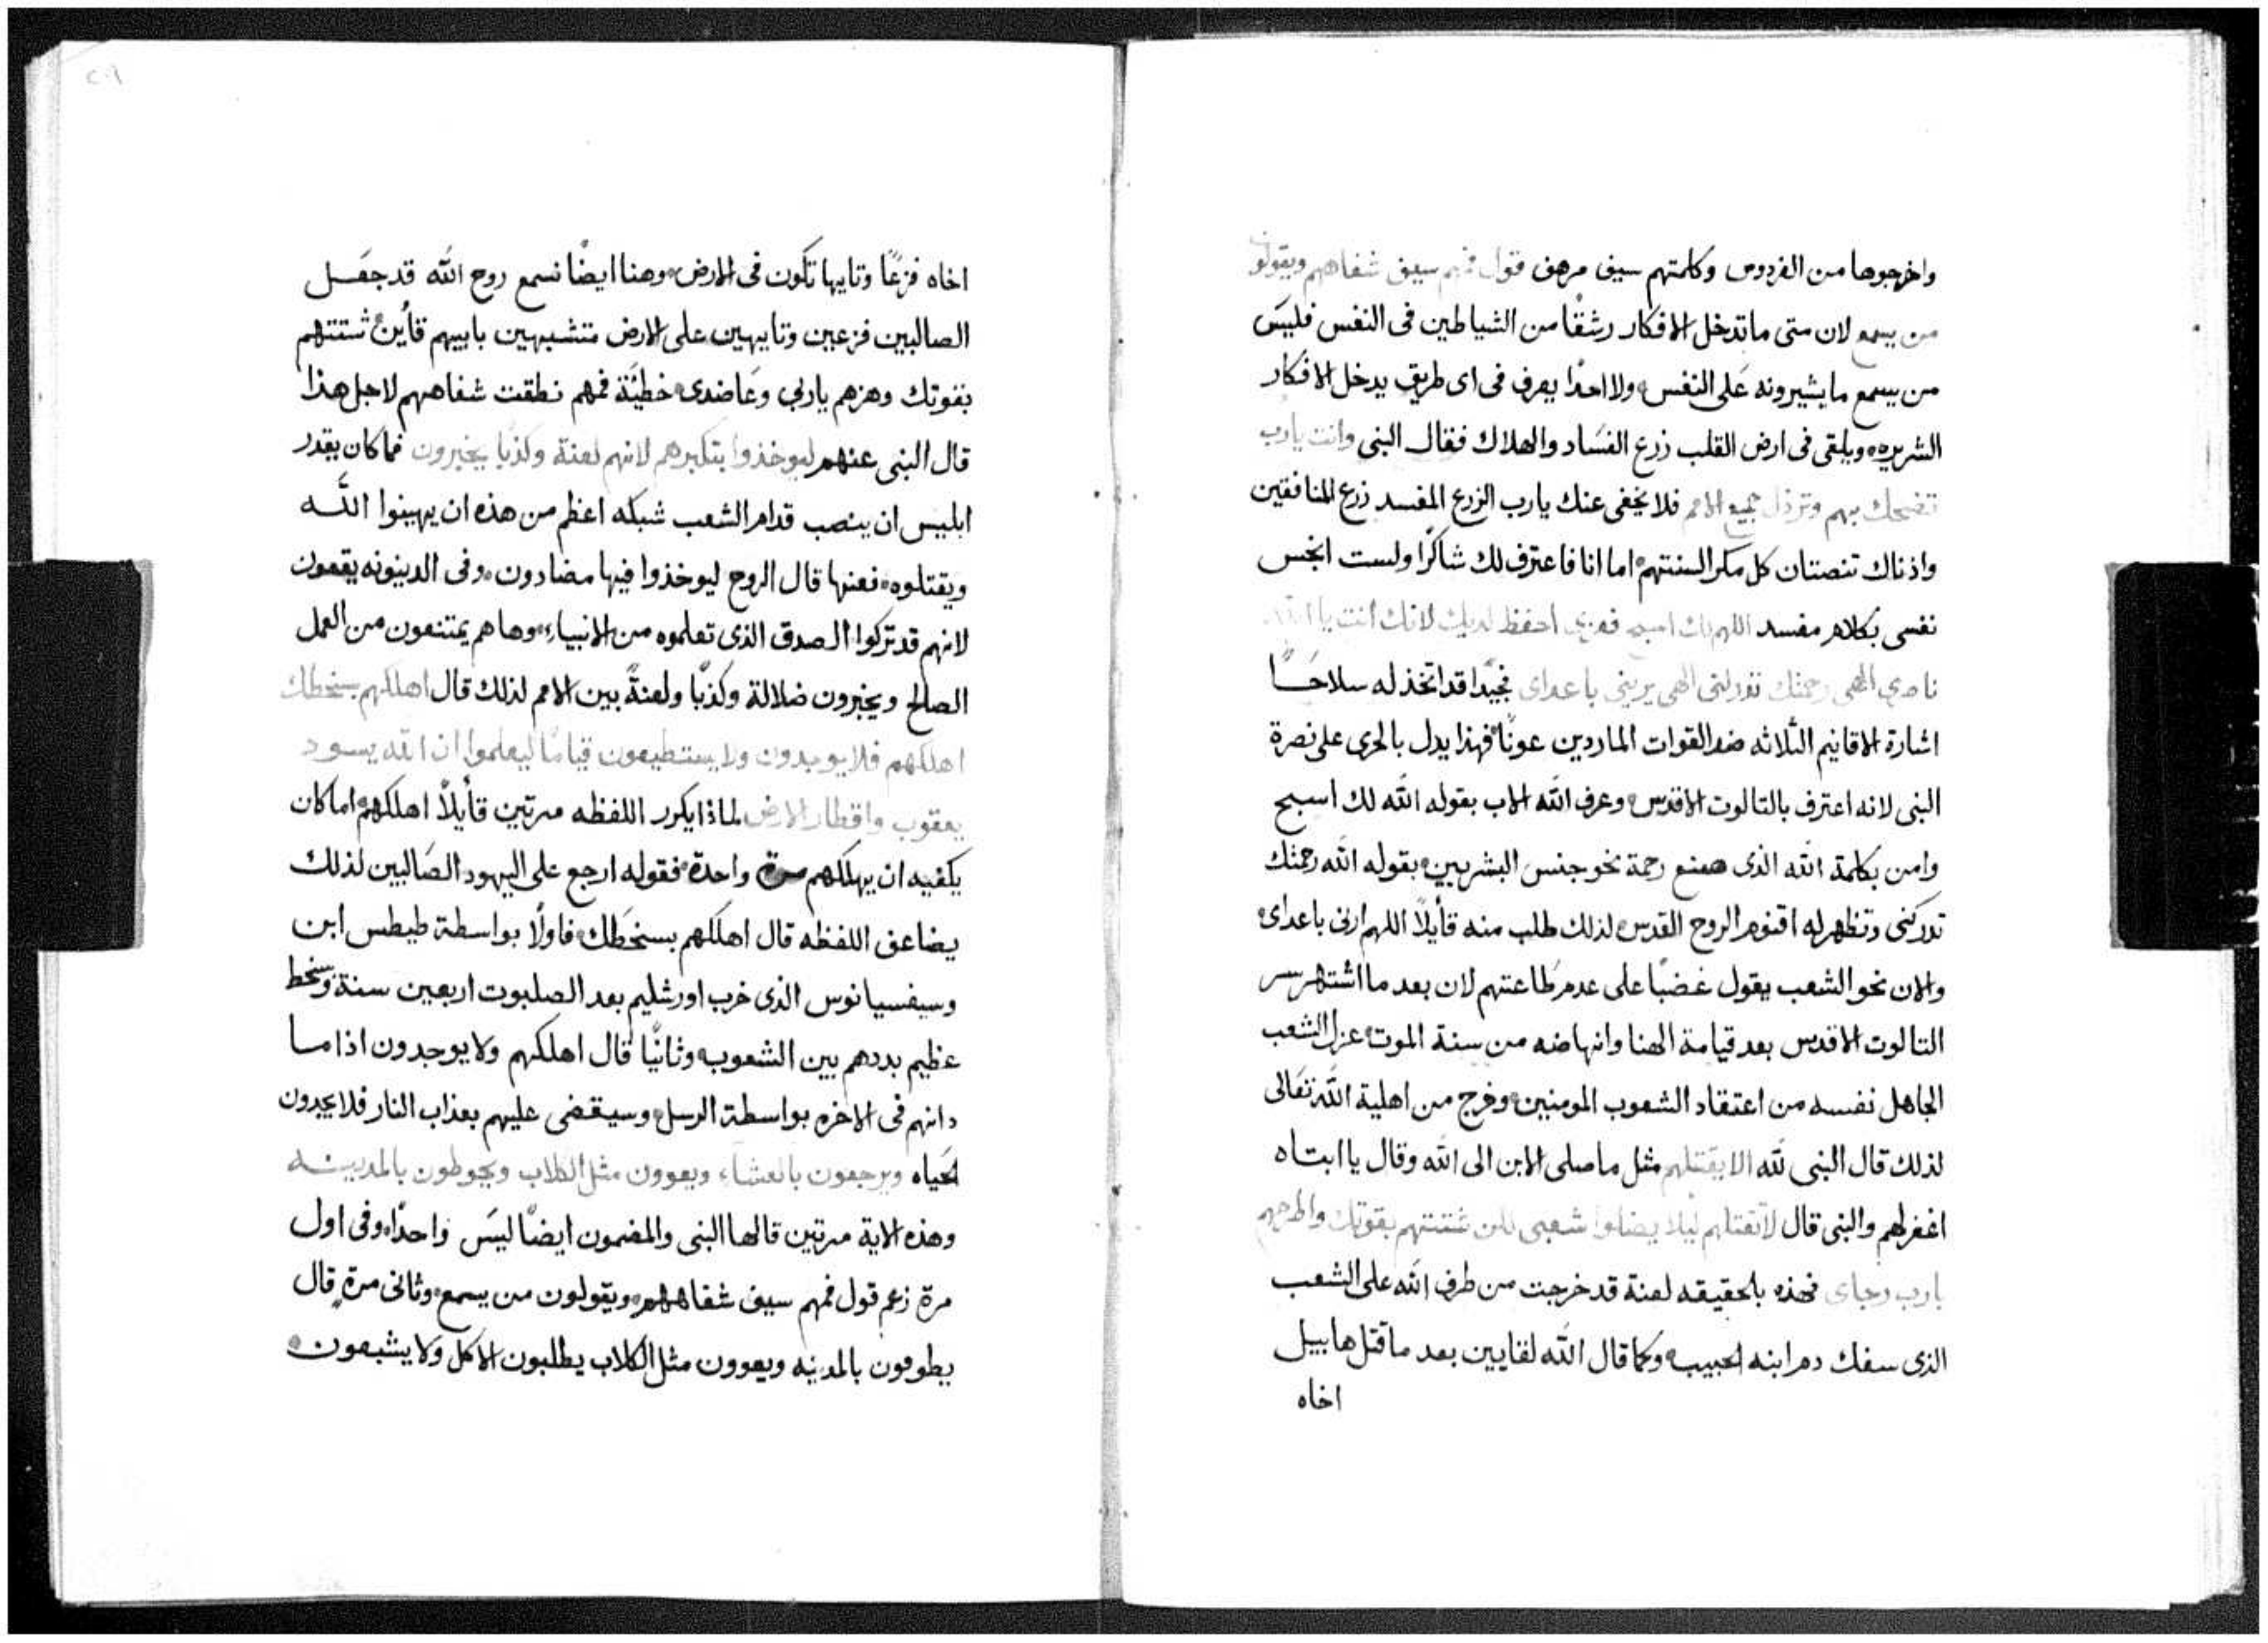 واخرجوها من الفردوس وكلمتهم سيف مرهف قول فمهم سيف شفاههم ويقولون
من يسمع لان متى ماتدخل الافكار رشقًا من الشياطين فى النفس فليس
من يسمع مايشيرونه على النفس ولا احدًا يعرف فى اى طريق يدخل الافكار
الشريره ويلقى فى ارض القلب زرع الفساد والهلاك فقال النبى وانت يارب
تضحك بهم وترذل جميع الامم فلا يخفى عنك يارب الزرع المفسد زرع المنافقين
واذناك تنصتان كل مكر السنتهم اما انا فاعترف لك شاكرًا ولست انجس
نفسى بكلام مفسد اللهم لك اسبح فعزى احفظ لديك لانك انت يا الله
ناصرى الهى رحمتك تدركنى الهى يرينى باعداى نجيدًا قد اتخذ له سلاحًا
اشارة الاقانيم الثلاثه ضد القوات الماردين عونًا فهذا يدل بالحرى على نصرة
النبى لانه اعترف بالتالوت الاقدس وعرف الله الاب بقوله الله لك اسبح
وامن بكلمة الله الذى صنع رحمة نحو جنس البشريين بقوله الله رحمتك
تدركنى وتظهر له اقنوم الروح القدس لذلك طلب منه قأيلاً اللهم ارنى باعداى
والان نحو الشعب يقول غضبًا على عدم طاعتهم لان بعد ما اشتهر سر
التالوت الاقدس بعد قيامة الهنا وانهاضه من سنة الموت عزل الشعب
الجاهل نفسه من اعتقاد الشعوب المومنين وخرج من اهلية الله تعالى
لذلك قال النبى لله الا يقتلهم مثل ماصلى الابن الى الله وقال يا ابتاه
اغفر لهم والنبى قال لا تقتلهم ليلا يضلوا شعبى لكن شتتهم بقوتك واطرحهم
يارب رجاى فهذه بالحقيقه لعنة قد خرجت من طرف الله على الشعب
الذى سفك دم ابنه الحبيب وكما قال الله لقايين بعد ماقتل هابيل
اخاه
٢٠٩
اخاه فزعًا وتايها تكون فى الارض وهنا ايضًا نسمع روح الله قد جعل
الصالبين فزعين وتايهين على الارض متشبهين بابيهم قأين شتتهم
بقوتك وهزهم ياربى وعاضدى خطيّة فمهم نطقت شفاههم لاجل هذا
قال النبى عنهم ليوخذوا بتكبرهم لانهم لعنة وكذبًا يخبرون فما كان يقدر
ابليس ان ينصب قدام الشعب شبكه اعظم من هذه ان يهينوا الله
ويقتلوه فعنها قال الروح ليوخذوا فيها مضادون وفى الدينونه يقعون
لانهم قد تركوا الصدق الذى تعلموه من الانبياء وها هم يمتنعون من العمل
الصالح ويخبرون ضلالة وكذبًا ولعنةً بين الامم لذلك قال اهلكهم بسخطك
اهلكهم فلا يوجدون ولا يستطيعون قيامًا ليعلموا ان الله يسود
يعقوب واقطار الارض لماذا يكرر اللفظه مرتين قأيلاً اهلكهم اما كان
يكفيه ان يهلكهم مرة واحدة فقوله ارجع على اليهود الصالبين لذلك
يضاعف اللفظه قال اهلكهم بسخطك فاولًا بواسطة طيطس ابن
وسيفسيانوس الذى خرب اورشليم بعد الصلبوت اربعين سنة وسخط
عظيم بددهم بين الشعوب وثانيًا قال اهلكهم ولا يوجدون اذا ما
دانهم فى الاخره بواسطة الرسل وسيقضى عليهم بعذاب النار فلا يجدون
الحياه ويرجعون بالعشاء ويعوون مثل الكلاب ويحوطون بالمدينه
وهذه الاية مرتين قالها النبى والمضمون ايضًا ليس واحدًا وفى اول
مرة زعم قول فمهم سيف شفاههم ويقولون من يسمع وثانى مرة قال
يطوفون بالمدينه ويعوون مثل الكلاب يطلبون الاكل ولا يشبعون